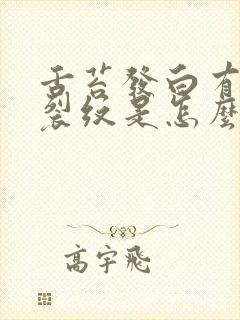 舌苔發白有
裂紋是怎麼
高宇飛